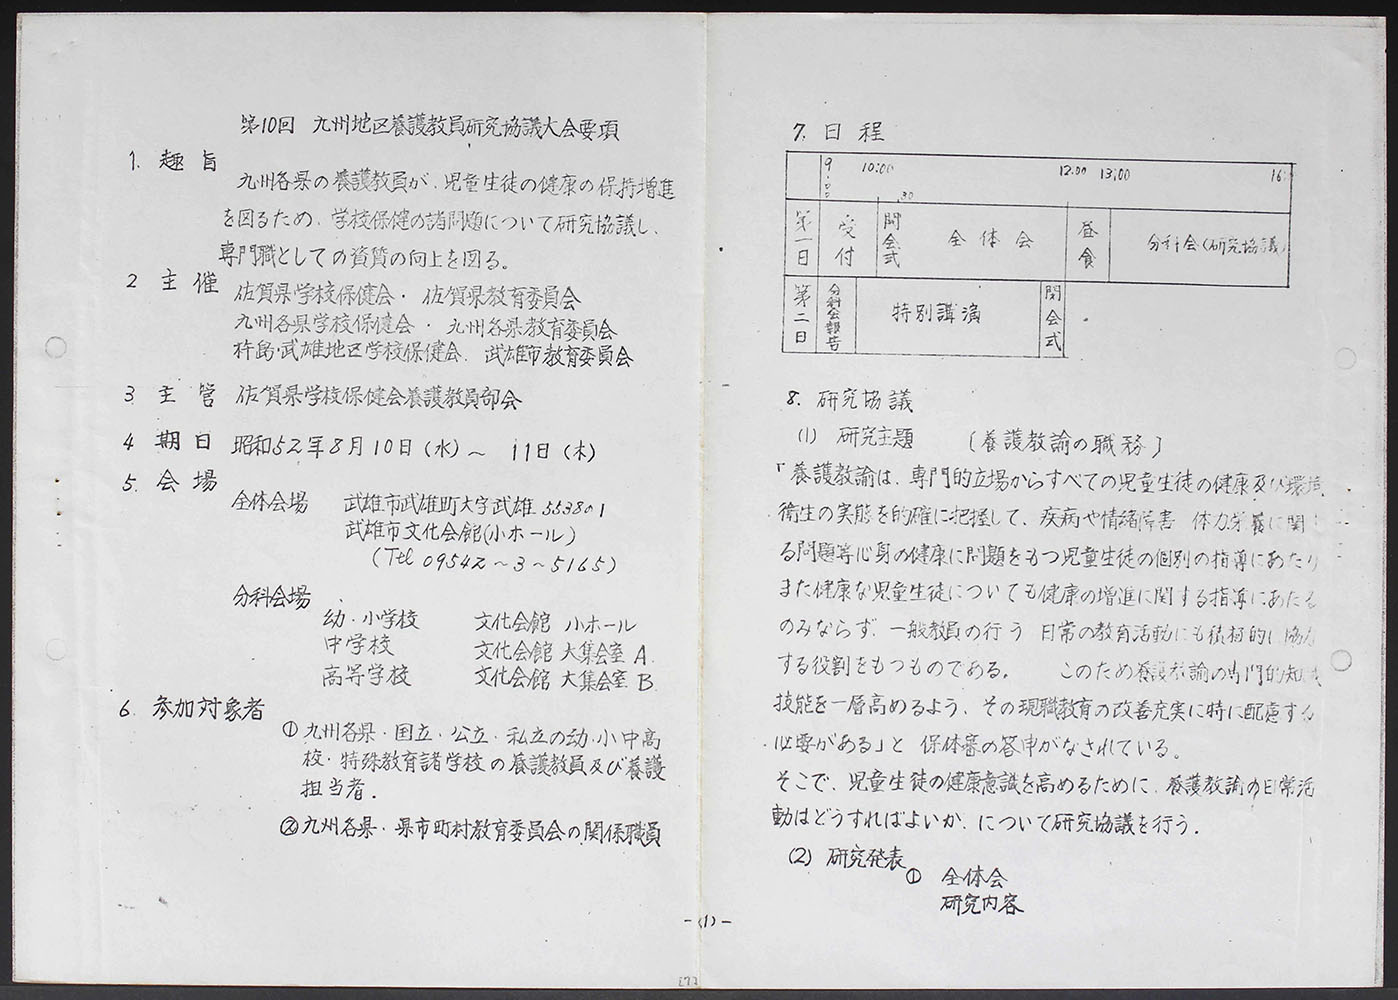 第10回 九州地区養護教員研究協議大会要項
1. 趣旨
九州各県の養護教員が、児童生徒の健康の保持増進
を図るため、学校保健の諸問題について研究協議し、
専門職としての資質の向上を図る。
2 主催 佐賀県学校保健会・佐賀県教育委員会
九州各県学校保健会・九州各県教育委員会
杵島・武雄地区学校保健会、武雄市教育委員会
3 主管 佐賀県学校保健会養護教員部会
4 期日 昭和52年8月10日(水)~11日(木)
5. 会場
全体会場 武雄市武雄町大字武雄5538の1
武雄市文化会館(小ホール)
(Tel 09542~3~5165)
分科会場
幼・小学校 文化会館 小ホール
中学校 文化会館 大集会室 A
高等学校 文化会館 大集会室 B
6. 参加対象者
① 九州各県・国立・公立・私立の幼・小中高
校・特殊教育諸学校の養護教員及び養護
担当者.
② 九州各県・県市町村教育委員会の関係職員
-(1)-
7. 日程
9:00 10:00 .30 12:00 13:00 16:
第一日 受付 開会式 全体会 昼食 分科会(研究協議)
第二日 分科会報告 特別講演 閉会式
8. 研究協議
(1) 研究主題 〔養護教諭の職務〕
「養護教諭は、専門的立場からすべての児童生徒の健康及び環境
衛生の実態を的確に把握して、疾病や情緒障害 体力栄養に関
る問題等心身の健康に問題をもつ児童生徒の個別の指導にあたり
また健康な児童生徒についても健康の増進に関する指導にあたる
のみならず、一般教員の行う 日常の教育活動にも積極的に協力
する役割をもつものである。 このため養護教諭の専門的知識
技能を一層高めるよう、その現職教育の改善充実に特に配慮する
必要がある」と 保体審の答申がなされている。
そこで、児童生徒の健康意識を高めるために、養護教諭の日常活
動はどうすればよいか、について研究協議を行う.
(2) 研究発表
① 全体会
研究内容